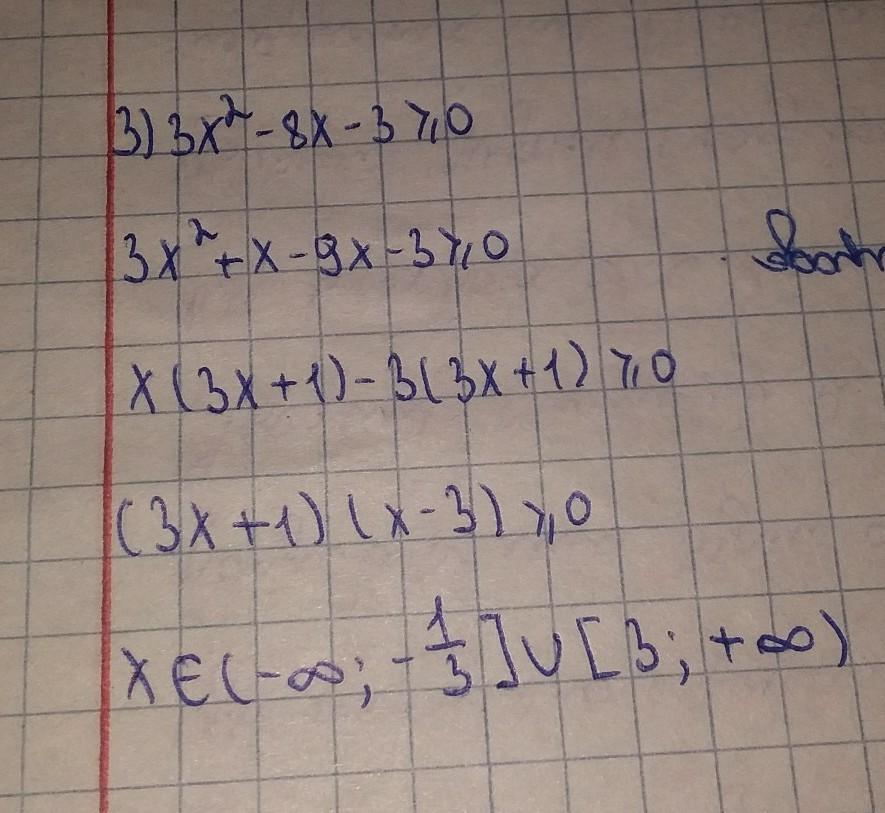 3) 3x² - 8x - 3 ⩾ 0
3x² + x - 9x - 3 ⩾ 0
x(3x+1) - 3(3x+1) ⩾ 0
(3x+1)(x-3) ⩾ 0
x∈(-∞; -1/3]∪[3; +∞)